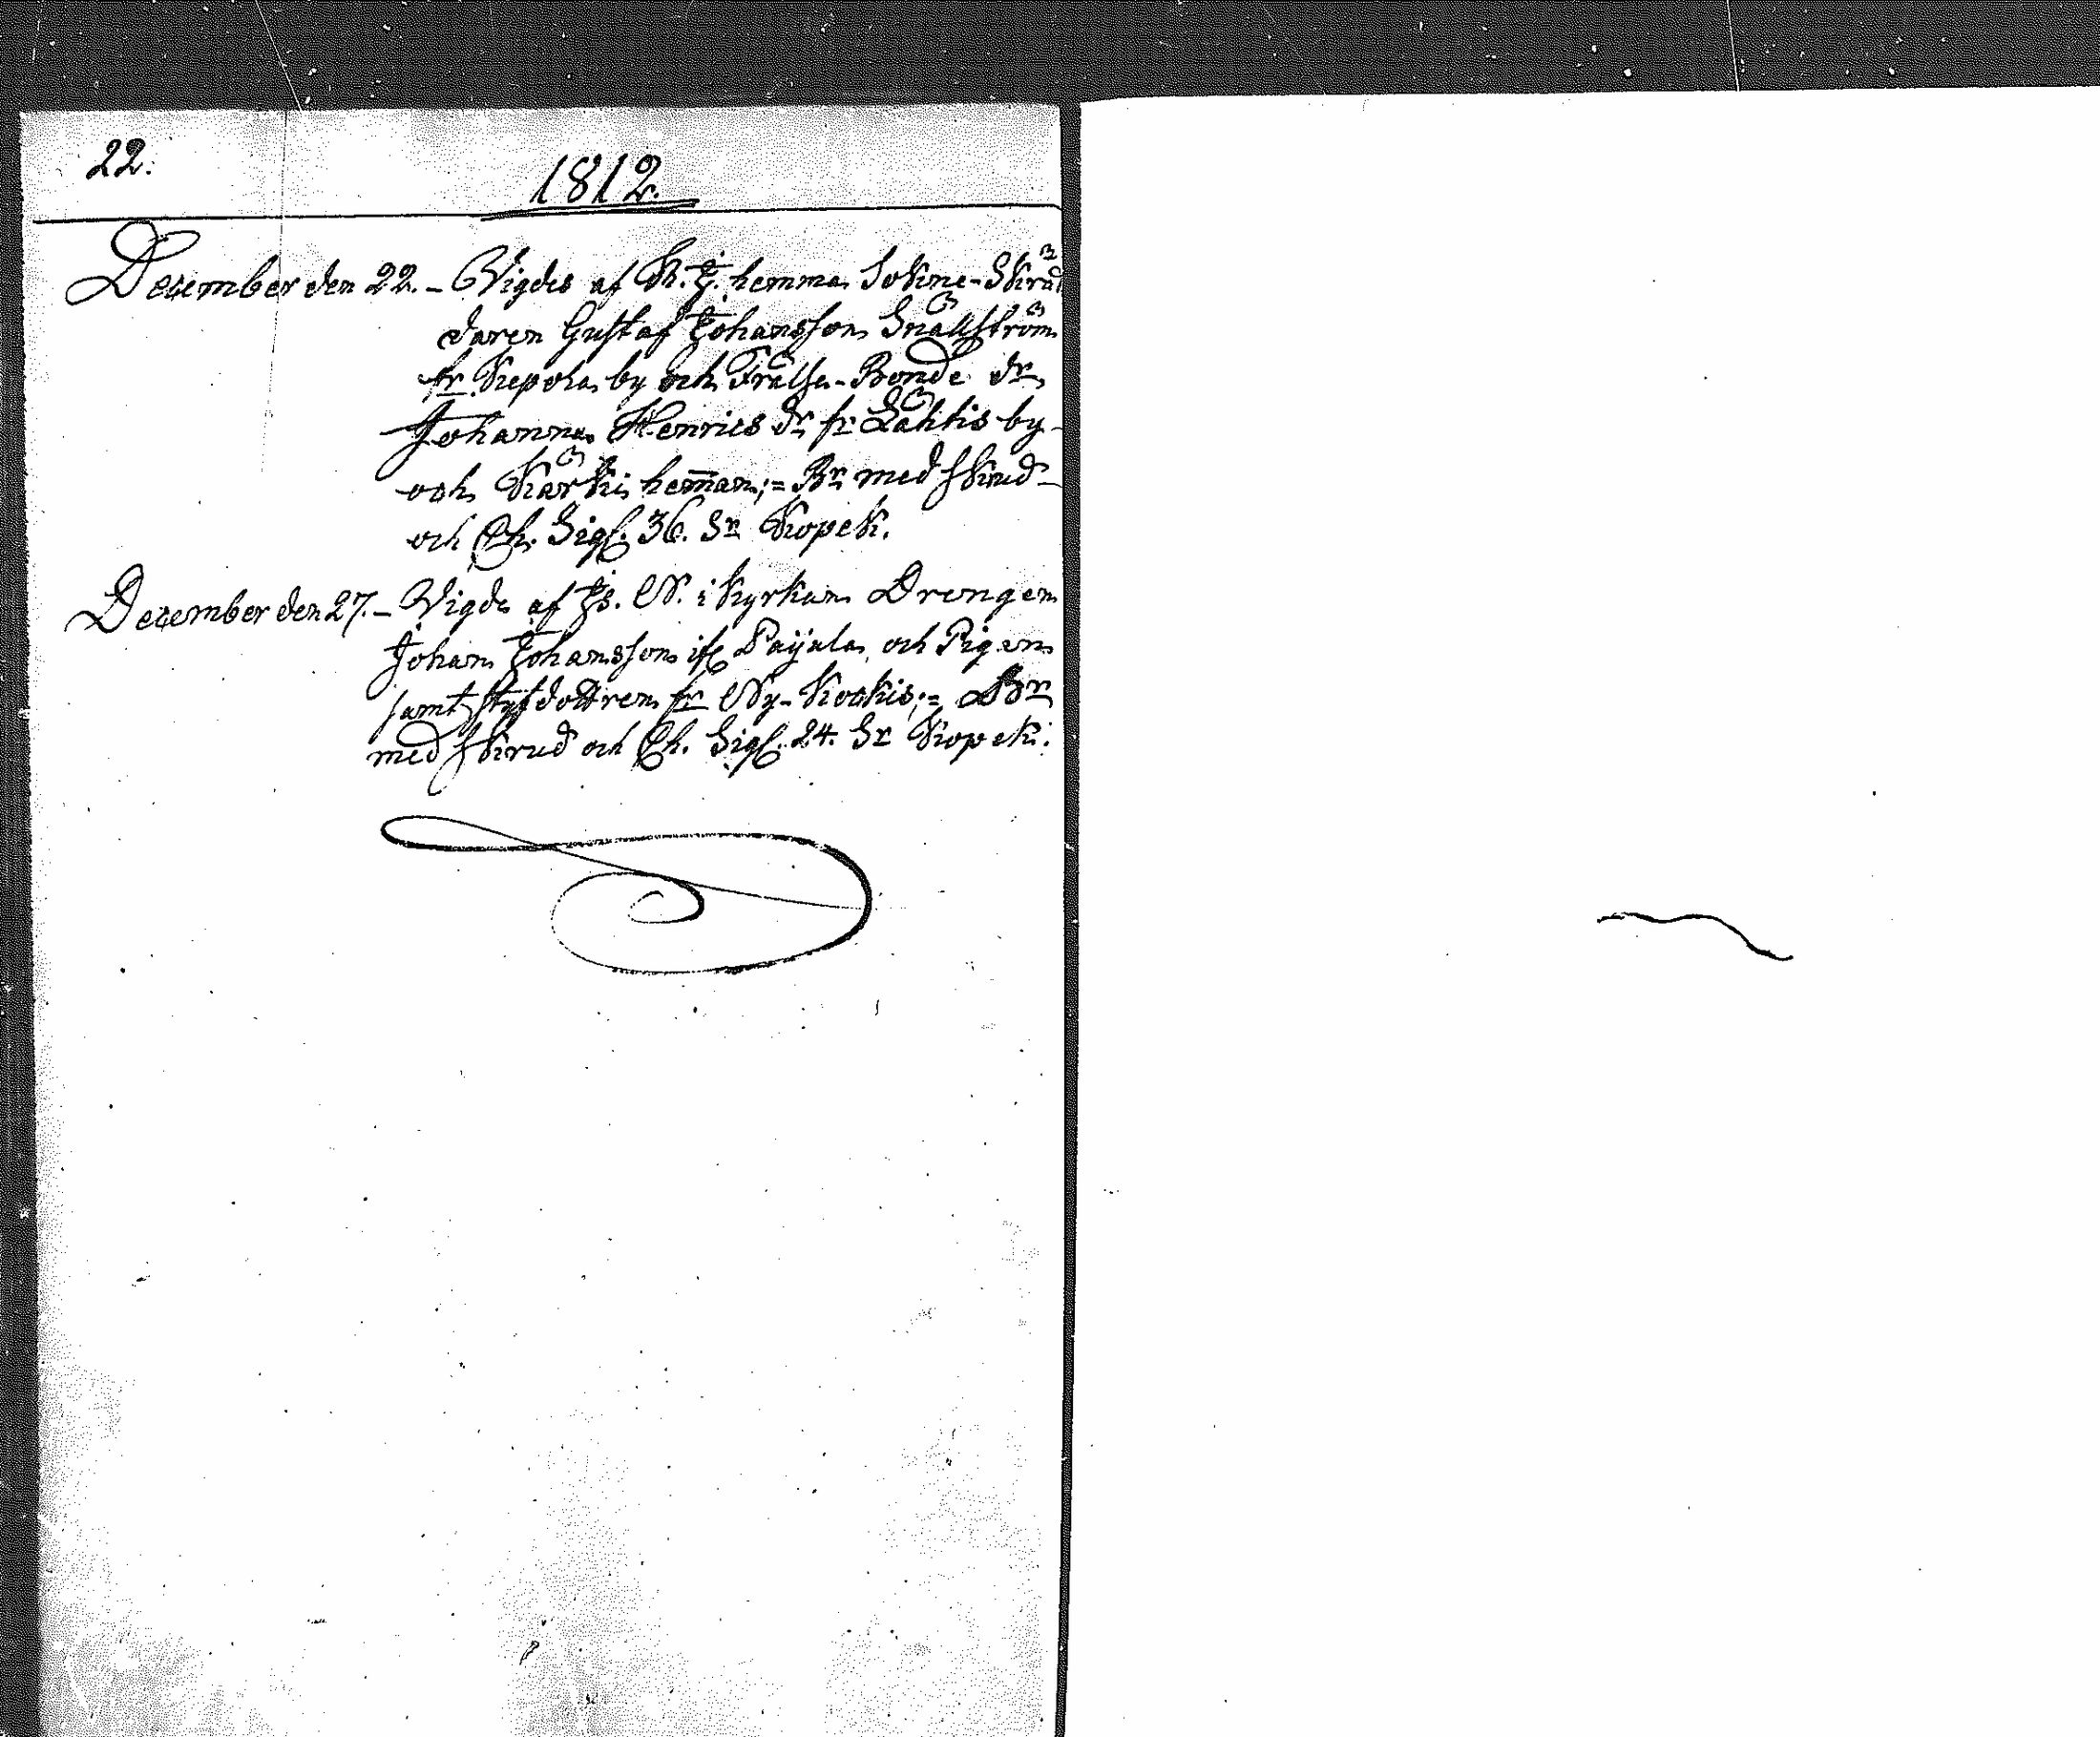 22.
1812.
December den 22. – Vigdes af Kh. J. hemma Sokne-Skräd
daren Gustaf Johansson Snällström
fr Kepola by och Frälse-Bonde dr
Johanna Henrics dr fr Lähtis by
och Kärki heman; = Br med skrud
och Ch. Sigf. 36. Sr Kopek.
December den 27. – Vigde af Js. N. i kyrkan Drengen
Johan Johansson if Paijala och Pigan
samt styfdottren fr Ny-Kockis; = Br
med skrud och Ch. Sigf. 24. Sr Kopek.